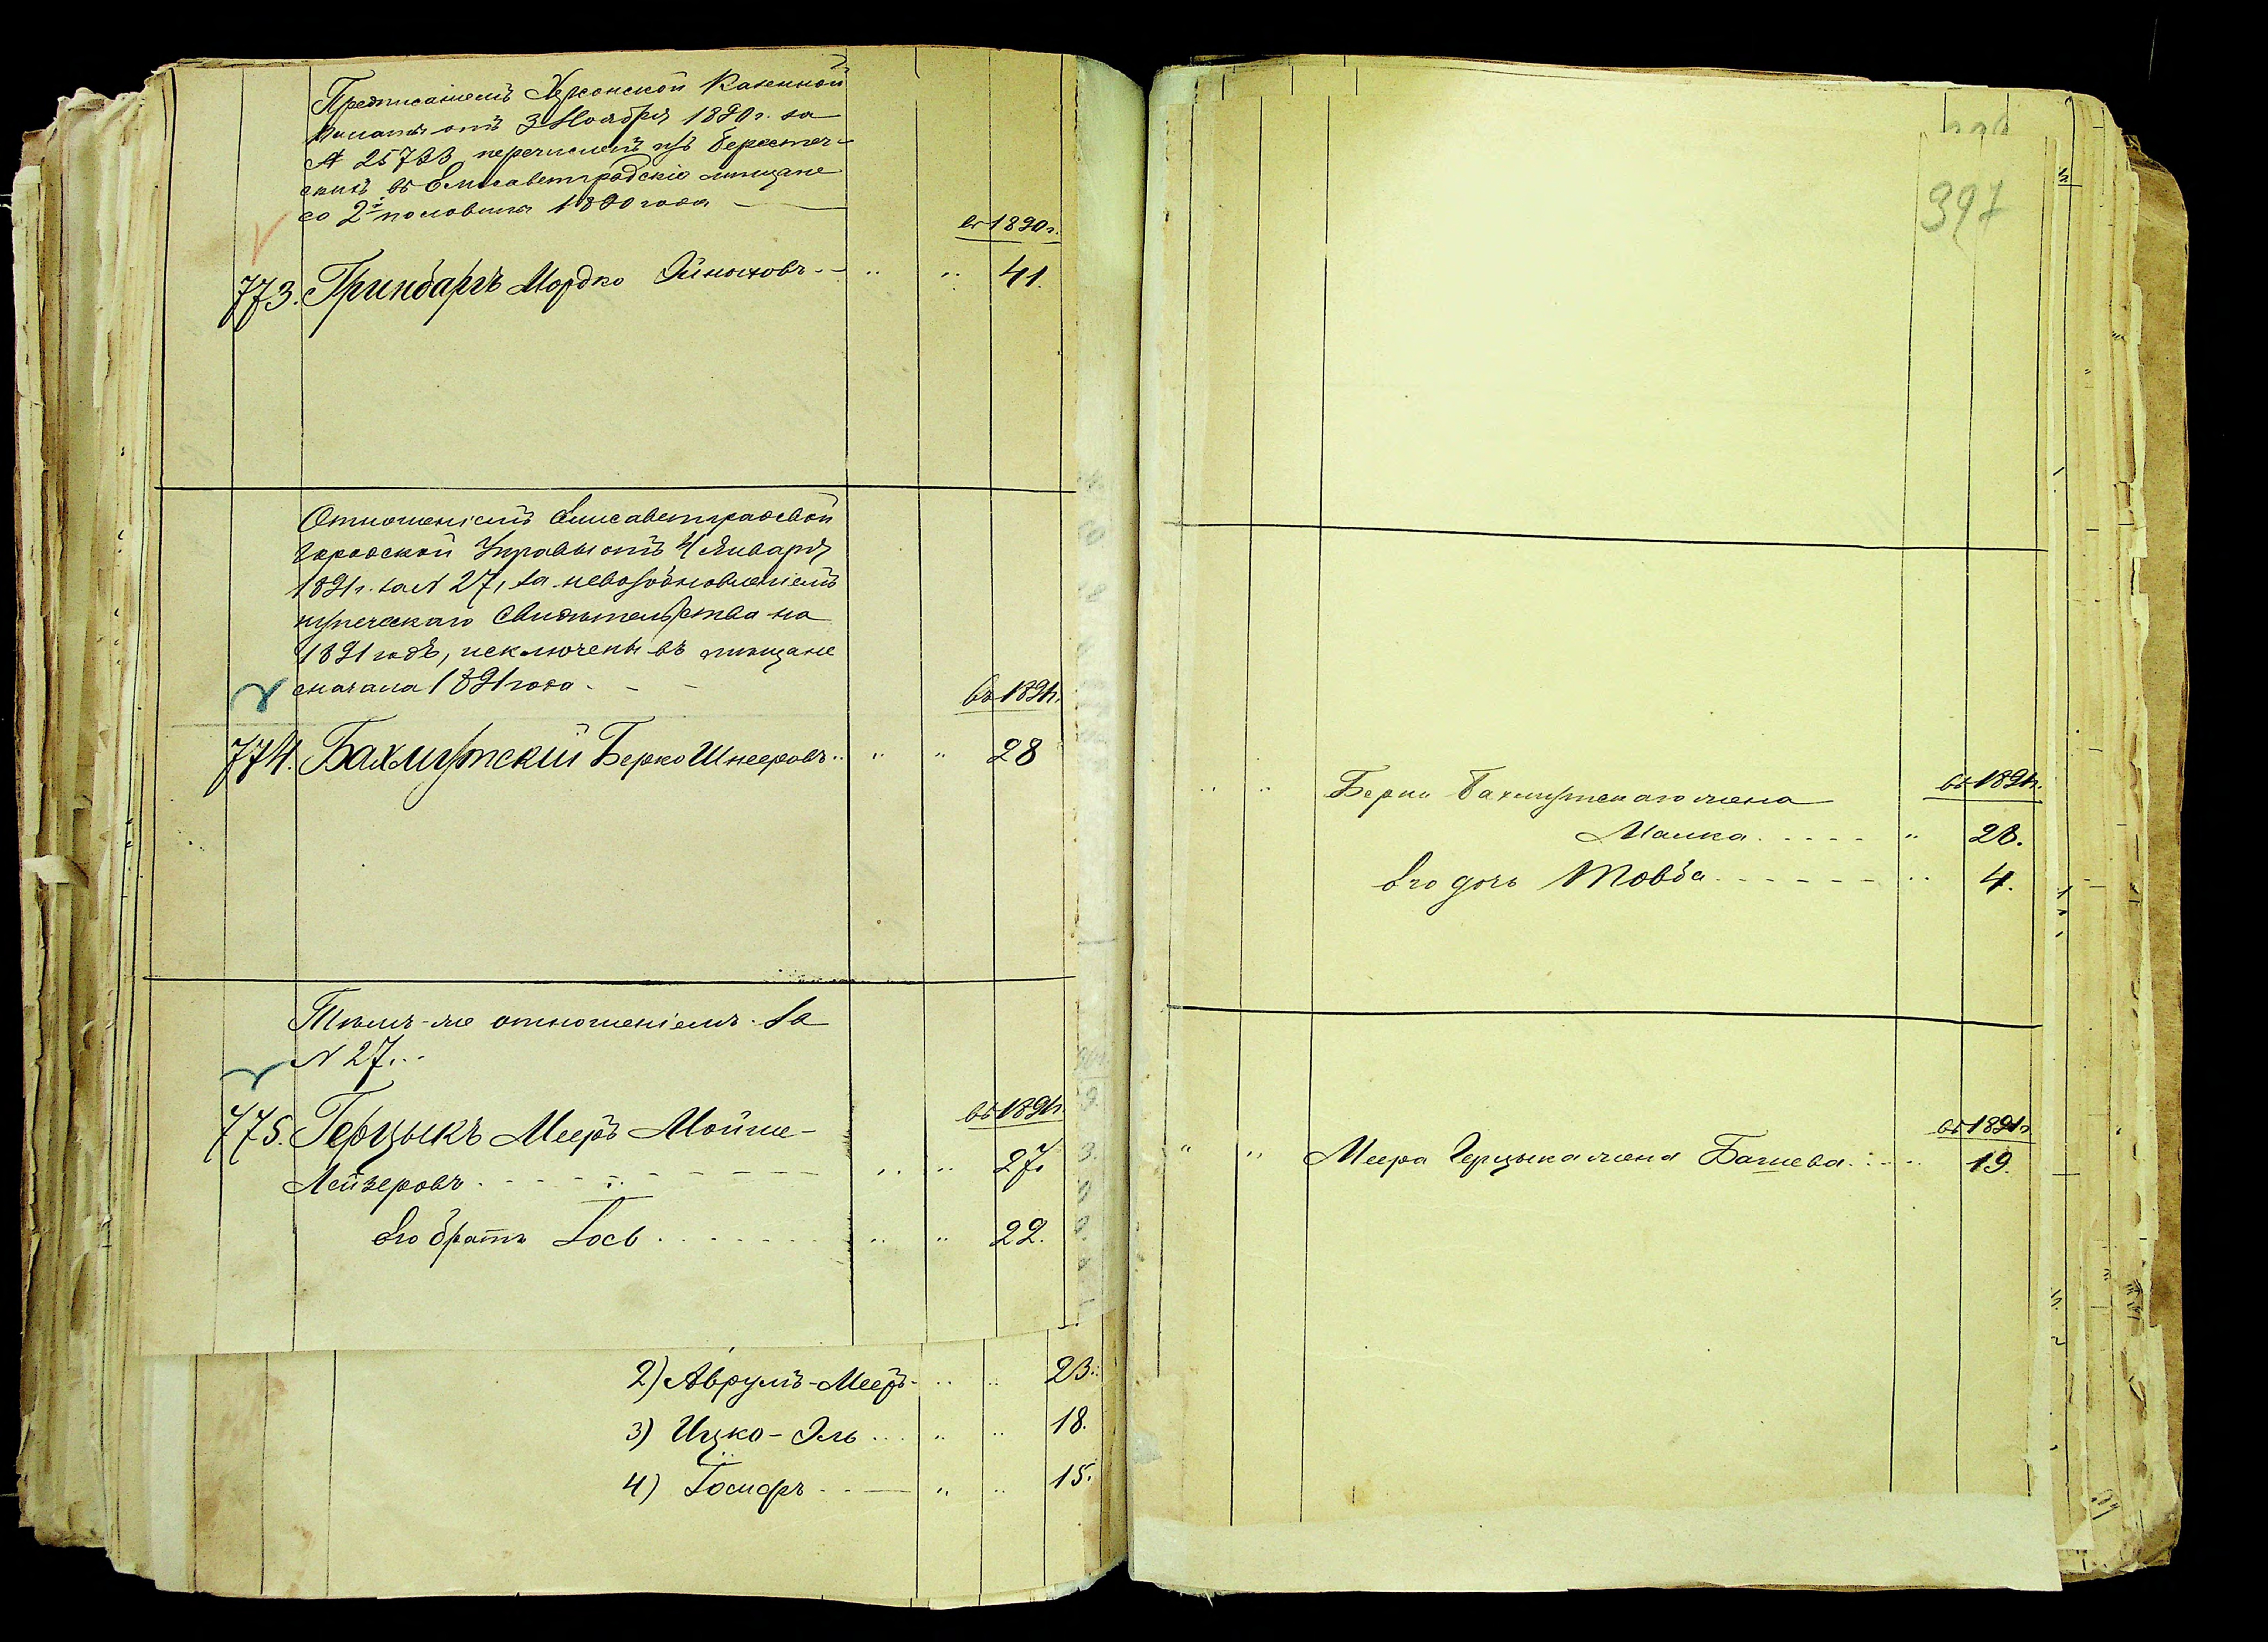 Предписаніемъ Херсонской Казенной
Палаты отъ 3 Ноября 1890 г. за
№ 25723 перечисленъ изъ Берестеч-
скихъ въ Елисаветградскіе мѣщане
со 2й половины 1890 года
въ 1890 г.
773. Гринбаргъ Мордко Ойноховъ 41.
Отношеніемъ Елисаветградской
Городской Управы отъ 4 Января
1891 г. за № 27, за невозобновленіемъ
купеческаго свидѣтельства на
1891 годъ, исключены въ мѣщане
сначала 1891 года
въ 1891 г.
774. Бахмутскій Берко Шнееровъ 28
Тѣмъ-же отношеніемъ за
№ 27...
въ 1891 г.
775. Герцыкъ Мееръ Мойше-
Лейзеровъ 27.
Его братъ Іось 22.
2) Аврумъ-Мееръ 23.
3) Ицко-Эль 18.
4) Іосифъ 15.
397
въ 1891 г.
Берки Бахмутскаго жена
Малка 28.
Его дочь Товба 4.
въ 1891 г.
Меера Герцыка жена Башева 19.